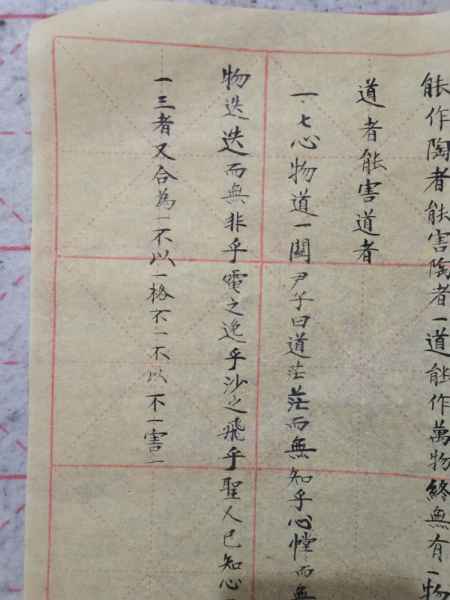 能作陶者能害陶者一道能作萬物終無有一物
道者能害道者
一·七心物道一關尹子曰道茫茫而無知乎心儻而無
物迭迭而無非乎電之逸乎沙之飛乎聖人已知心
一三者又合為一不以一格不一不以不一害一